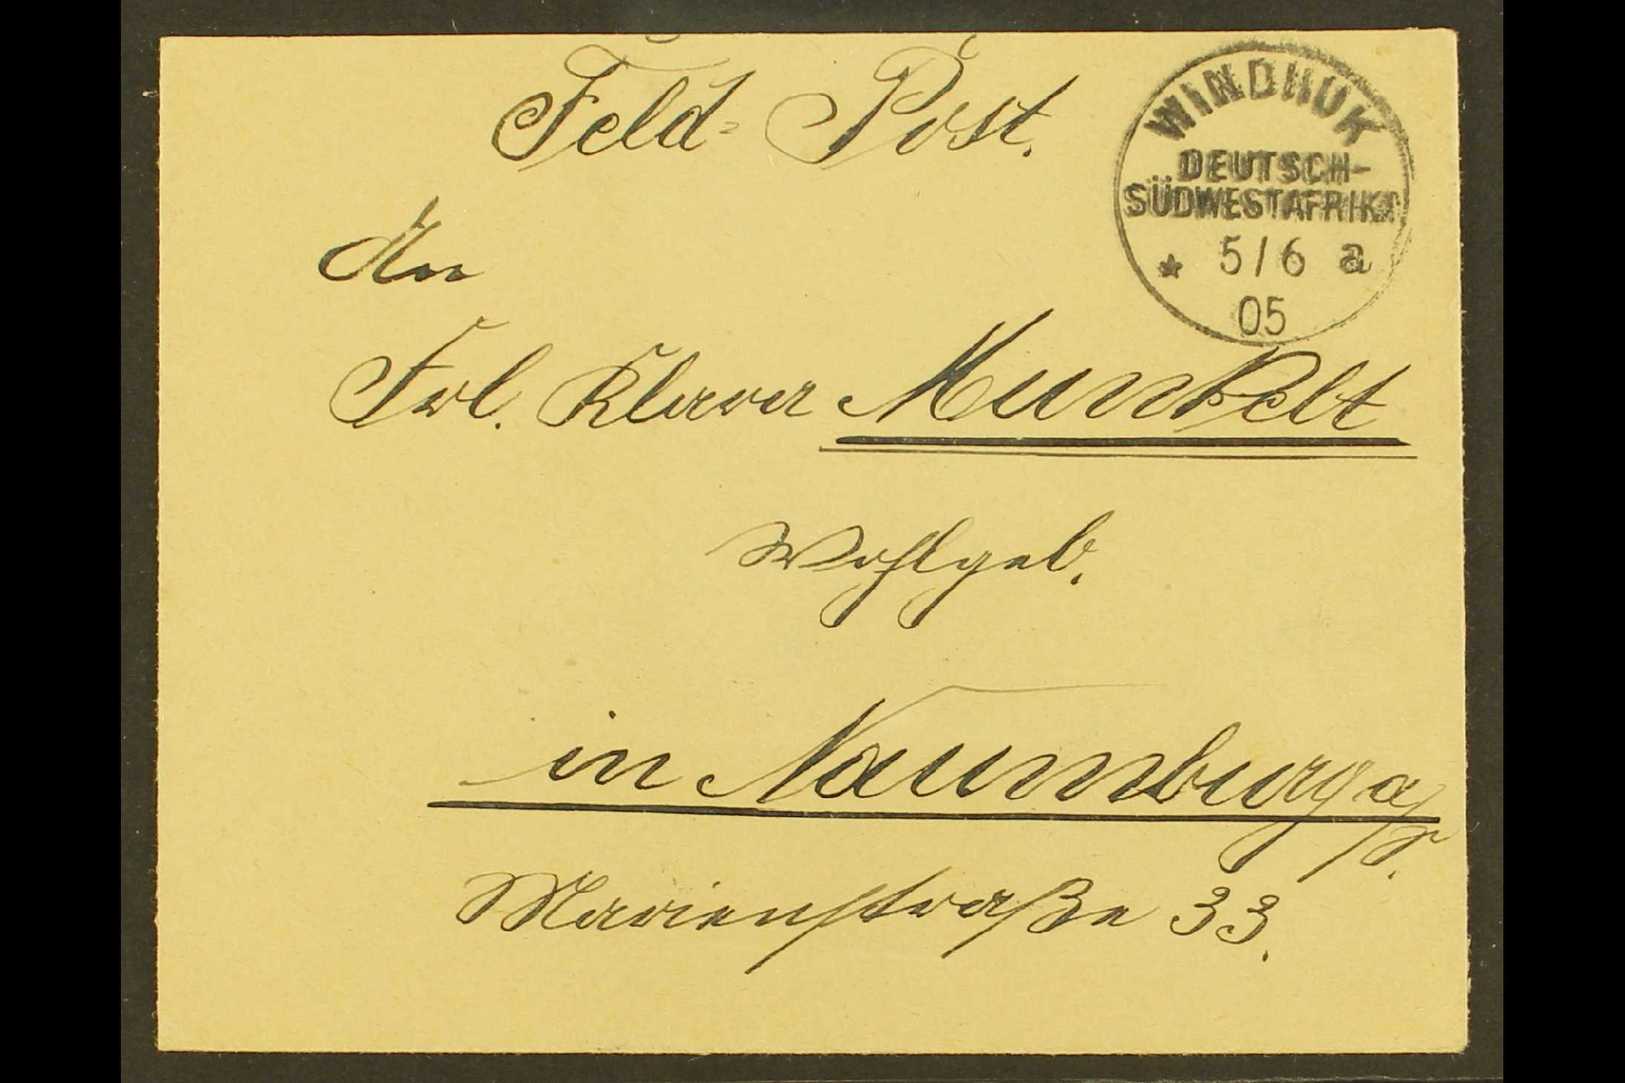 Feld-Post.
WINDHUK
DEUTSCH-
SÜDWESTAFRIKA
* 5/6 a
05
An
Frl. Klara Munkelt
Wohlgeb.
in Naumburg a/S.
Marienstraße 33.